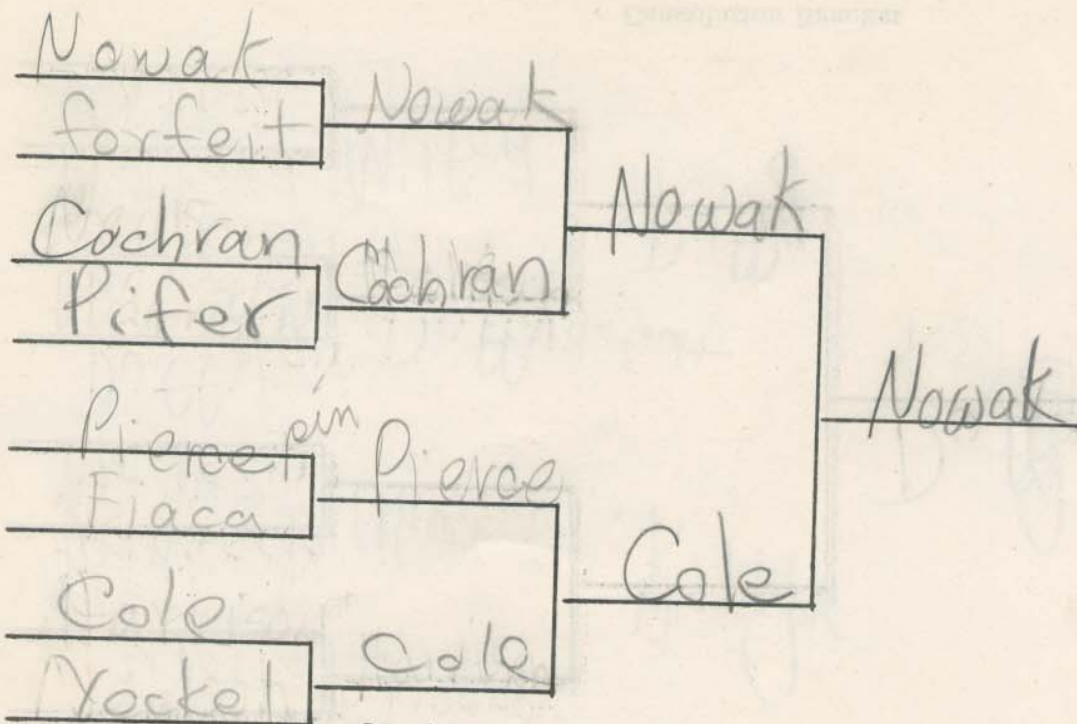 Nowak
forfeit
Cochran
Pifer
Pierce pin
Fiaca
Cole
Yockel
Nowak
Cochran
Pierce
Cole
Nowak
Cole
Nowak